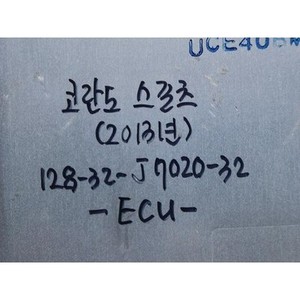 코란도 스포츠
(2013년)
128-32-J7020-32
-ECU-